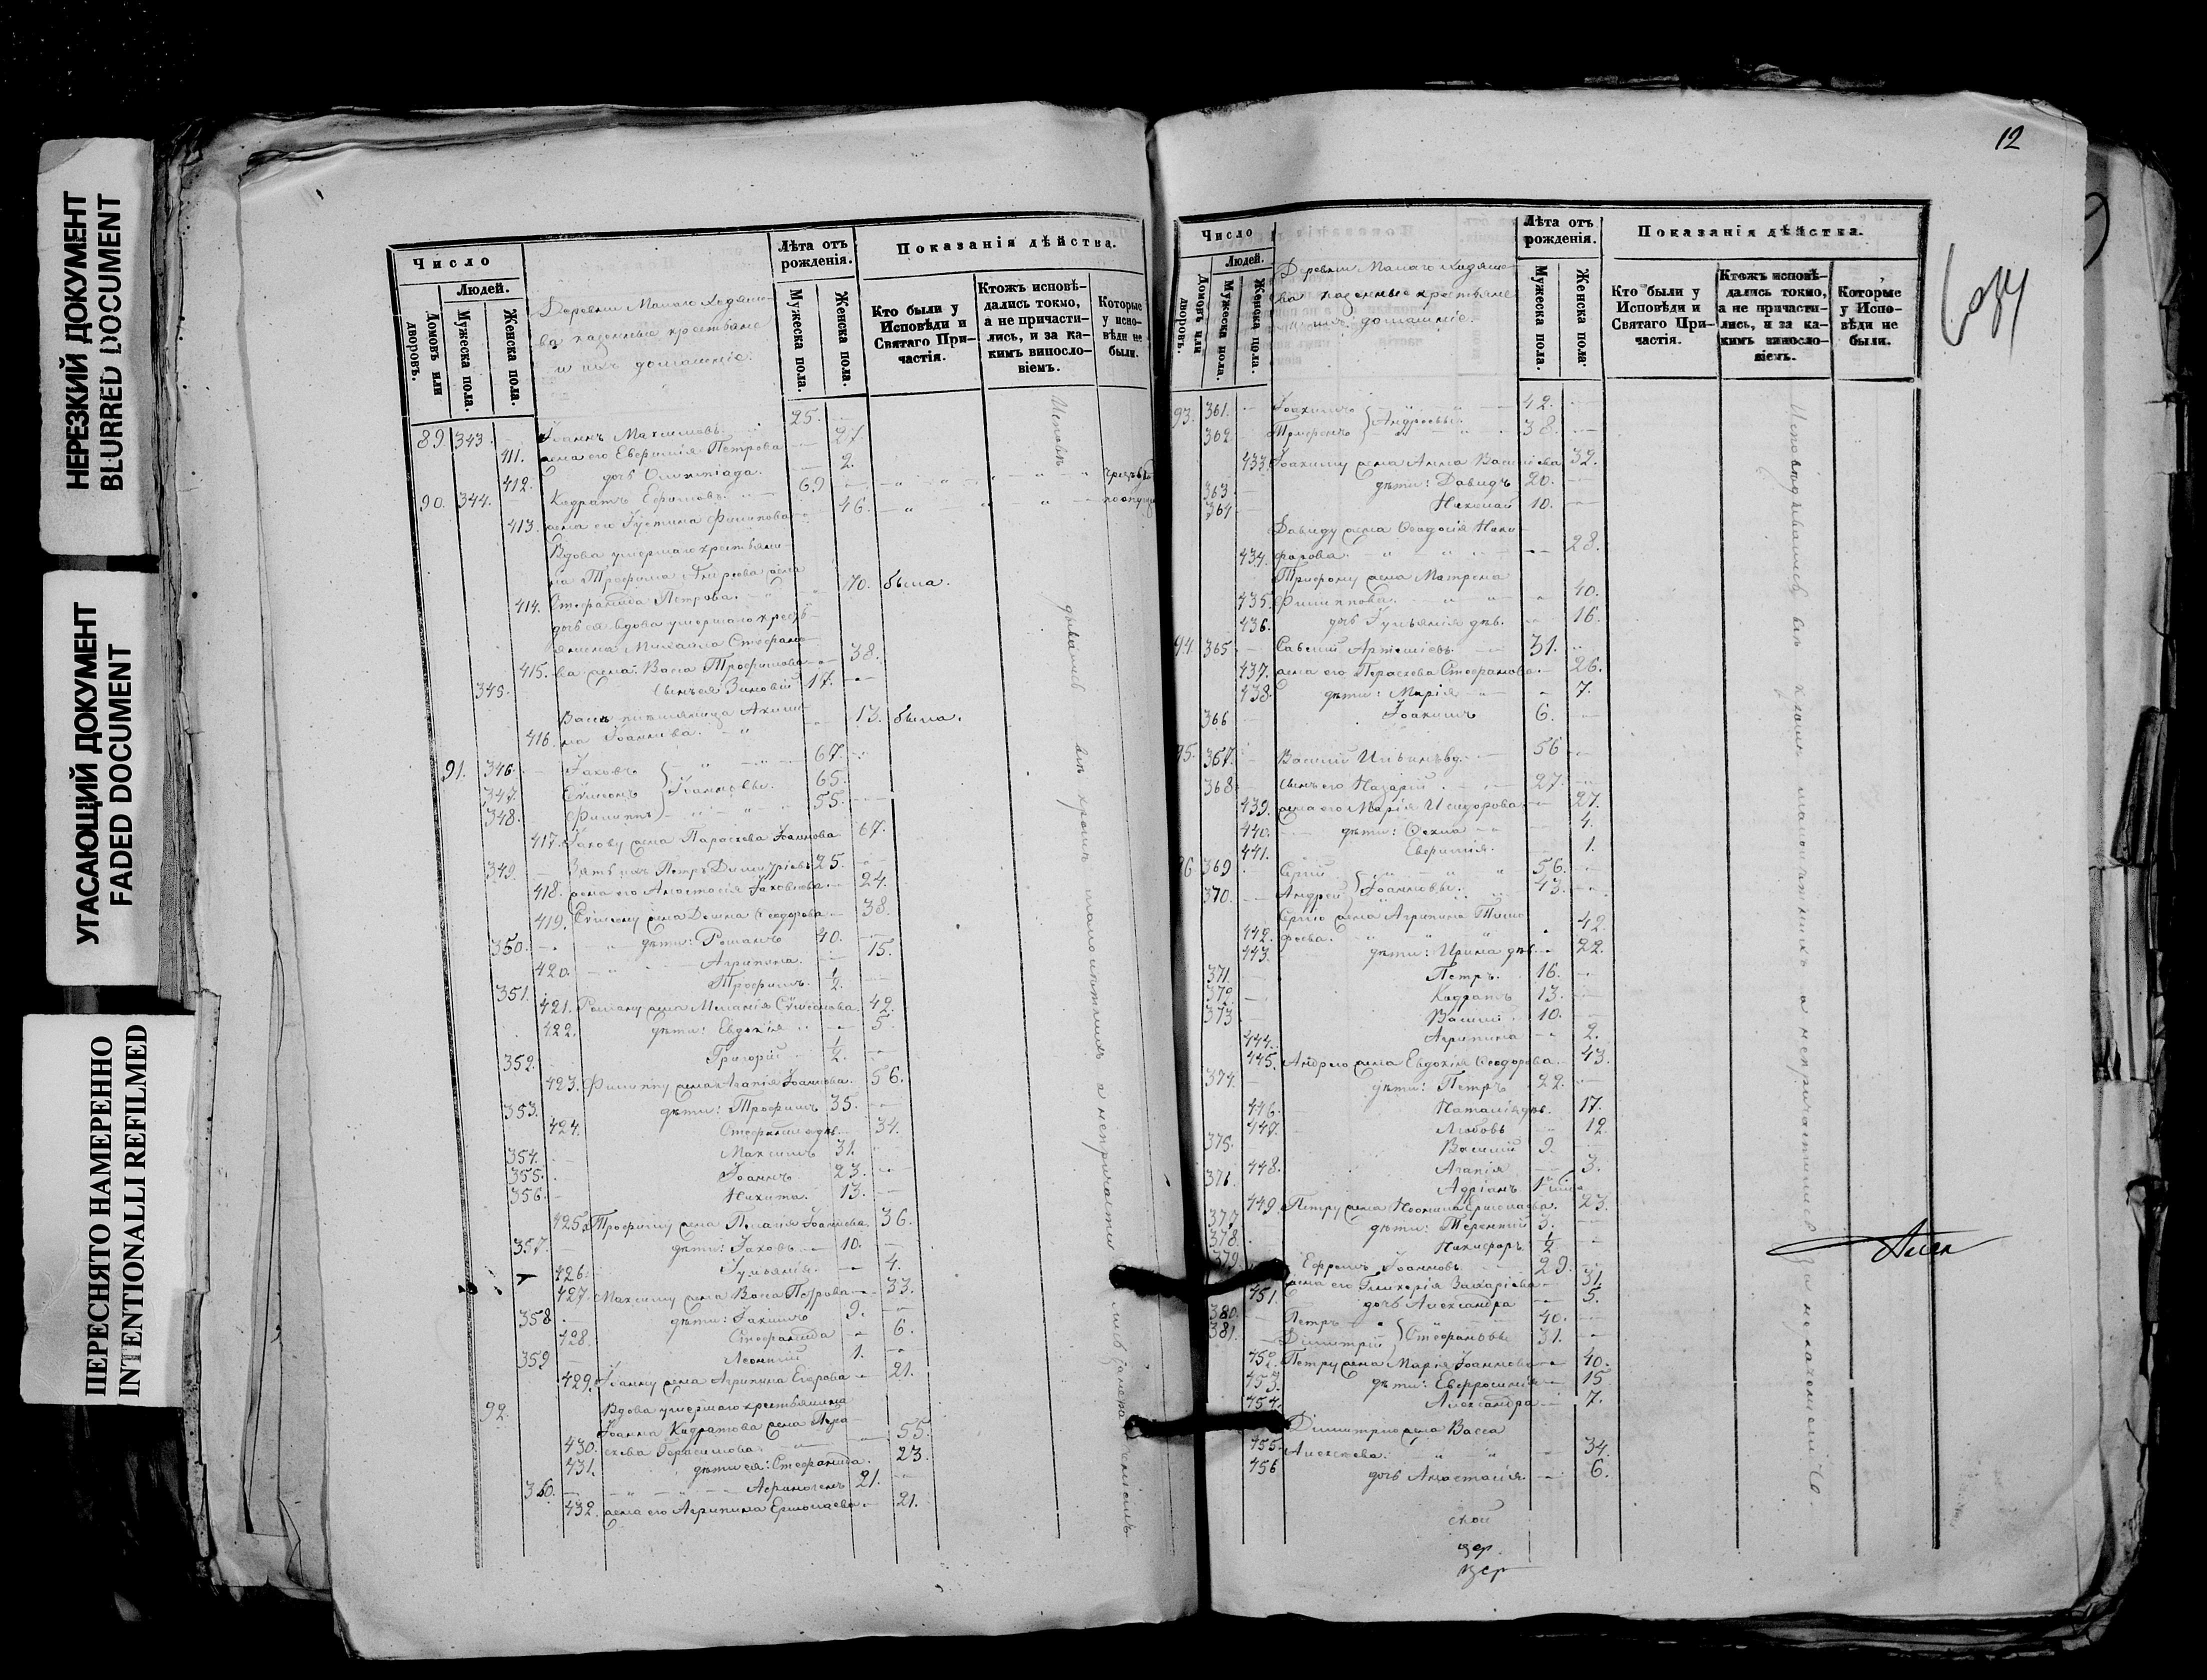 НЕРЕЗКИЙ ДОКУМЕНТ
BLURRED DOCUMENT
УГАСАЮЩИЙ ДОКУМЕНТ
FADED DOCUMENT
ПЕРЕСНЯТО НАМЕРЕННО
INTENTIONALLI REFILMED
Число
Людей.
Домовъ или дворовъ.
Мужеска пола.
Женска пола.
Деревни Малаго Ходяше-
ва казенные крестьяне
и ихъ домашніе.
Лѣта отъ рожденія.
Мужеска пола.
Женска пола.
Показанія дѣйства.
Кто были у Исповѣди и Святаго При-частія.
Ктожъ исповѣ-дались токмо, а не причасти-лись, и за ка-кимъ винослo-віемъ.
Которые у испо-вѣди не были.
89. 343. Іоаннъ Максимовъ. 25.
411. жена его Евфимія Петрова 27.
412. дочь Олимпіада. 2.
90. 344. Кодратъ Ефимовъ. 69
413. жена его Іустина Филипова 46.
Вдова умершаго крестьяни-
на Трофима Андреева жена
414. Стефанида Петрова. 70. была.
дочь ея вдова умершаго кресть-
янина Михаила Стефано-
415. ва жена Васса Трофимова 38.
345. сынъ ея Зиновій 17.
416. на Іоаннова. 13. была.
91. 346. Іаковъ 67.
347. Сѵмеонъ Іоанновы. 65.
348. Филиппъ 55.
417. Іакову жена Параскева Іоаннова 67.
349. Зять ихъ Петръ Димитріевъ 25.
418. жена его Анастасія Іаковлева 24.
419. Сѵмеону жена Домна Ѳеодорова 38.
350. дѣти: Романъ 40.
420. Агрипина. 15.
351. Трофимъ. 1/2.
421. Роману жена Меланія Сѵмеонова. 42.
422. дѣти: Евдокія 5.
352. Григорій 1/2.
423. Филиппу жена Агапія Іоаннова. 56.
353. дѣти: Трофимъ 35.
424. Стефанида дѣв. 34.
354. Максимъ 31.
355. Іоаннъ 23.
356. Никита. 13.
425. Трофиму жена Пелагія Іоаннова. 36.
357. дѣти: Іаковъ 10.
426. Іуліанія. 4.
427. Максиму жена Васса Петрова 33.
358. дѣти: Іакимъ 9.
428. Стефанида 6.
359. Леонтій 1.
429. Іоанну жена Агрипина Егорова 21.
92. Вдова умершаго крестьянина
Іоанна Кодратова жена Пара-
430. скева Герасимова 55.
431. дѣти ея: Стефанида. 23.
360. Афиногенъ 21.
432. жена его Агрипина Ермолаева 21.
12
Число
Людей.
Домовъ или дворовъ.
Мужеска пола.
Женска пола.
Деревни Малаго Ходяше-
ва казенные крестьяне
и ихъ домашніе.
Лѣта отъ рожденія.
Мужеска пола.
Женска пола.
Показанія дѣйства.
Кто были у Исповѣди и Святаго При-частія.
Ктожъ исповѣ-дались токмо, а не причасти-лись, и за ка-кимъ винословіемъ.
Которые у Испо-вѣди не были.
93. 361. Іоакимъ 42.
362. Трифонъ Андреевы. 38.
433. Іоакиму жена Анна Василіева 39.
363. дѣти: Давидъ 20.
364. Николай 10.
Давиду жена Ѳеодосія Ники-
434. форова. 28.
Трифону жена Матрена
435. Филиппова. 40.
436. дочь Іуліанія дѣв. 16.
94. 365. Савелій Артеміевъ 31.
437. жена его Параскева Стефанова 26.
438. дѣти: Марія 7.
366. Іоакимъ 6.
95. 367. Василій 56
368. сынъ его Назарій 27.
439. жена его Марія Исидорова 27.
440. дѣти: Ѳекла 4.
441. Евфимія. 1.
96. 369. Сергій 56.
370. Андрей Іоанновы. 43.
Сергію жена Агрипина Тимо-
442. феева. 42.
443. дѣти: Ирина дѣв. 22.
371. Петръ. 16.
372. Кодратъ 13.
373. Василій 10.
444. Агрипина 2.
445. Андрею жена Евдокія Ѳеодорова. 43.
374. дѣти: Петръ 22.
446. Наталія дѣв. 17.
447. Любовь 12.
375. Василій 9.
448. Агапія 3.
376. Адріанъ
449. Петру жена Неонила Ермолаева. 23.
377. дѣти: Терентій 3.
378. Никифоръ 1/2
379. Ефремъ Іоанновъ 29.
жена его Гликерія Захаріева 31.
451. дочь Александра 5.
380. Петръ 40.
381. Димитрій Стефановы 31.
452. Петру жена Марія Іоаннова 40.
453. дѣти: Евфросинія 15
454. Александра 7.
Димитрію жена Васса
455. Алексѣева. 34.
456 дочь Анастасія. 6.
Исповѣдывались вси кромѣ малолѣтнихъ а непричастились за неканоненіемъ